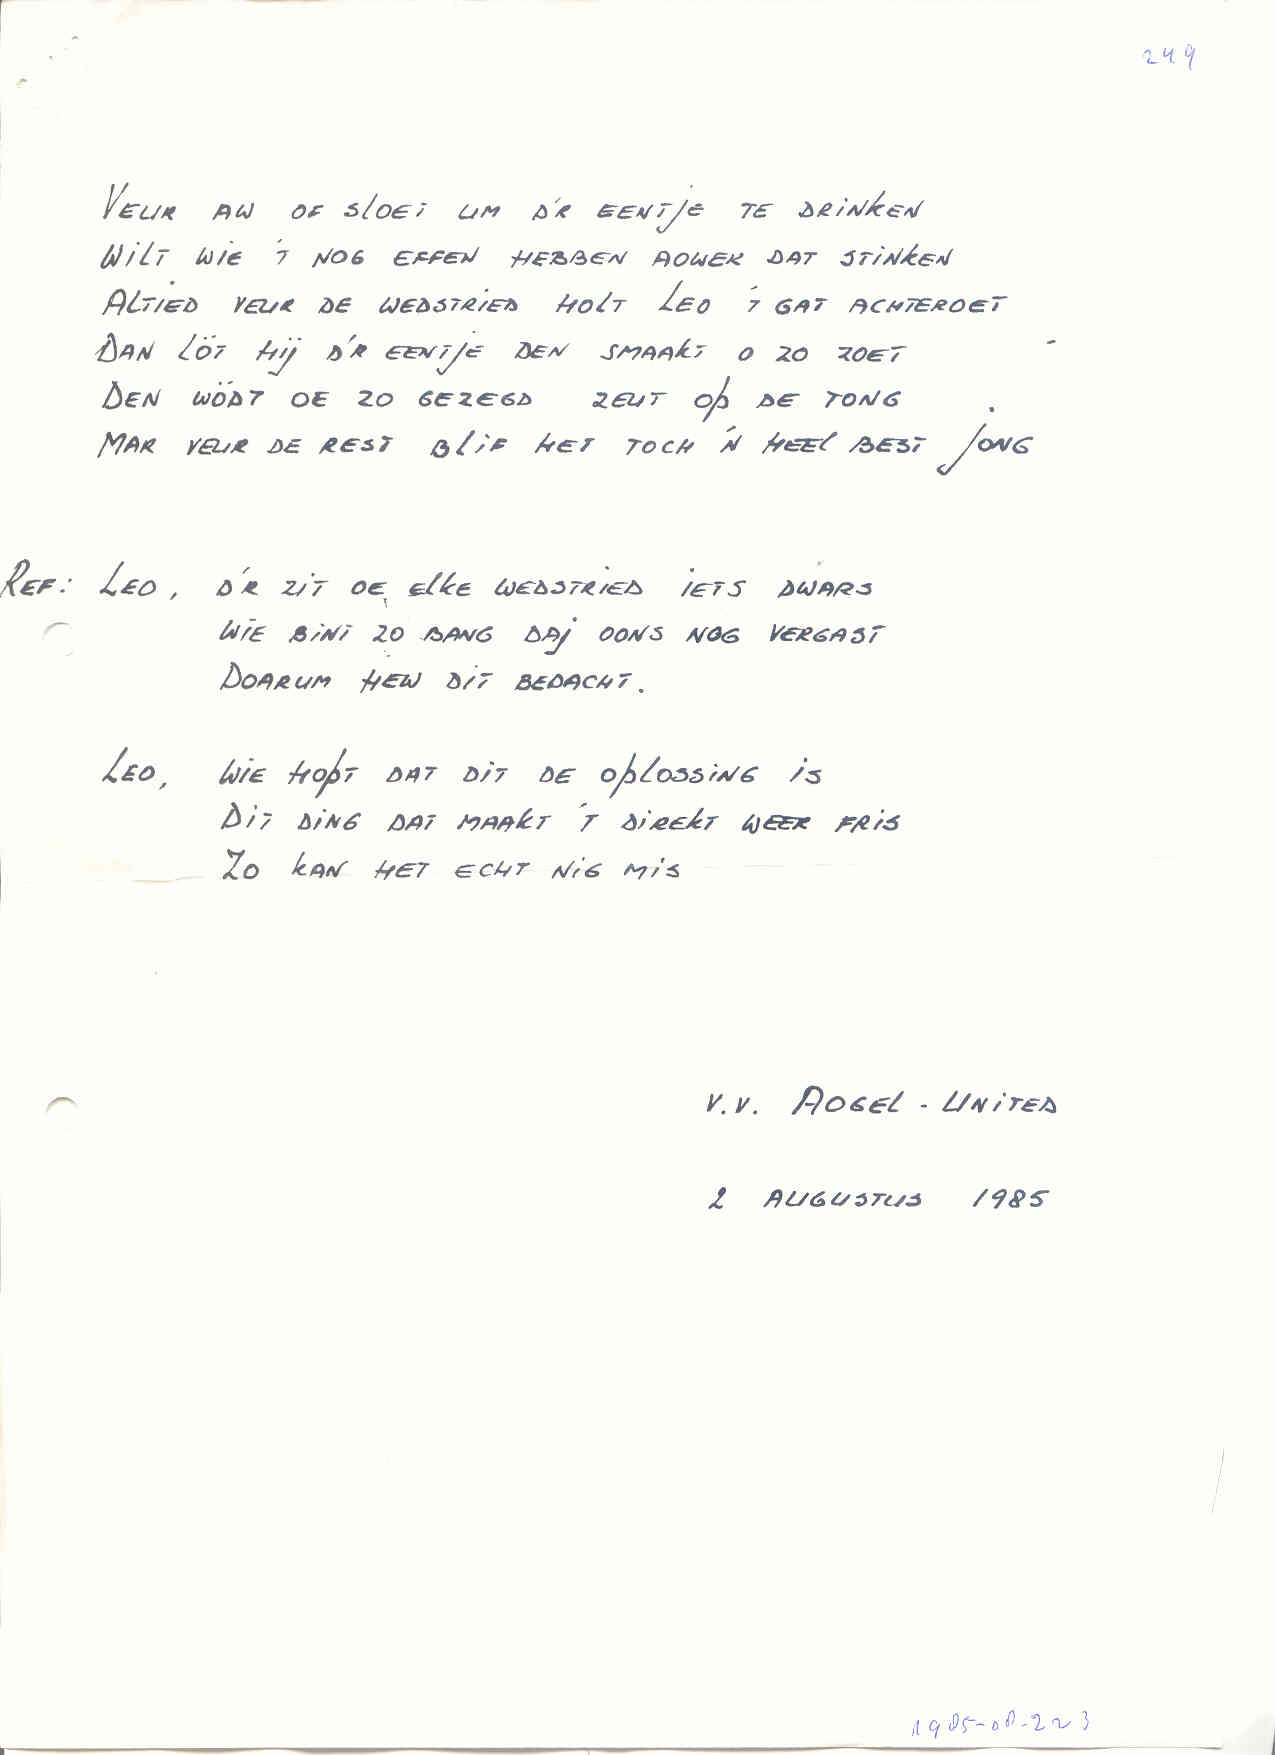 249
Veur aw of sloet um d'r eentje te drinken
Wilt wie 't nog effen hebben aower dat stinken
Altied veur de wedstried holt Leo 't gat achteroet
Dan löt hij d'r eentje den smaakt o zo zoet
Den wödt oe zo gezegd zeut op de tong
Mar veur de rest blif het toch 'n heel best jong
Ref: Leo, d'r zit oe elke wedstried iets dwars
Wie bint zo bang daj oons nog vergast
Doarum hew dit bedacht.
Leo, wie hopt dat dit de oplossing is
Dit ding dat maakt 't direkt weer fris
Zo kan het echt nig mis
v.v. Aogel - United
2 Augustus 1985
1985-08-223